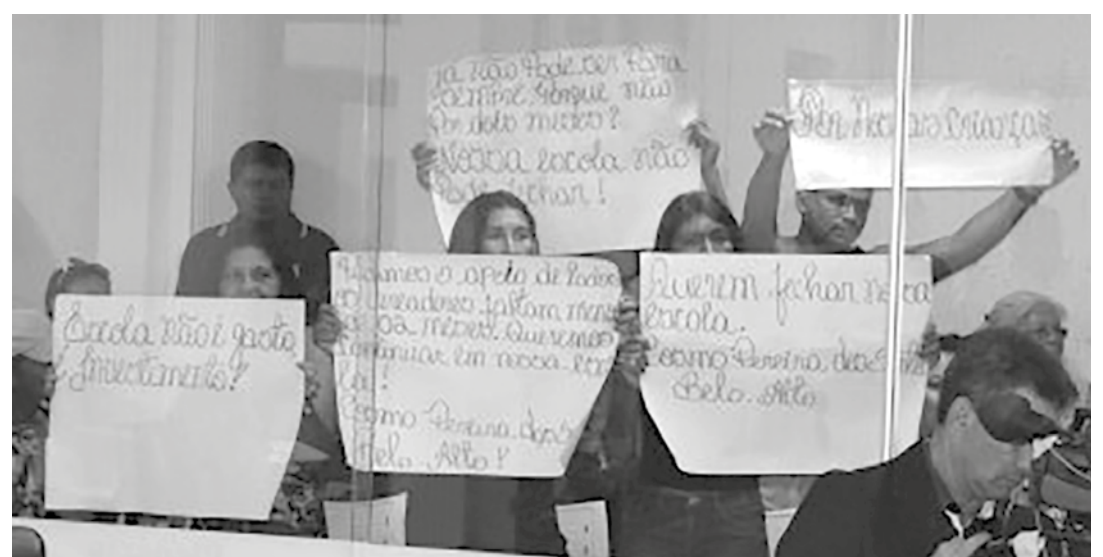 já não Pode ser Para
sempre. Porque não
Por dois meses?
Nossa escola não
Pode fechar!
Por Nossas crianças
Escola Não é gasto,
é Investimento!
o apelo de todos
vereadores faltam menos
de 02 meses. Queremos
Continuar em nossa esco
la!
Cosmo Pereira dos S
Belo-Alto!
Querem fechar nossa
escola.
Cosmo Pereira dos
Belo-Alto